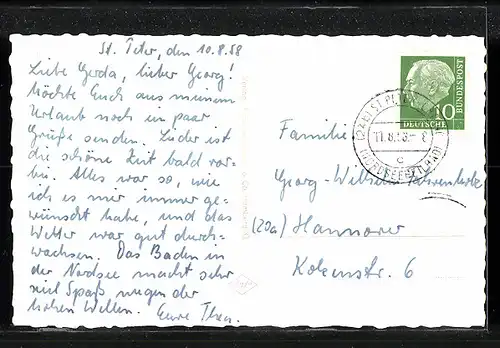 St. Peter, den 10.8.58
Liebe Gerda, lieber Georg!
Möchte Euch aus meinem
Urlaub noch ein paar
Grüße senden. Leider ist
die schöne Zeit bald vor-
bei. Alles war so, wie
ich es mir immer ge-
wünscht habe, und das
Wetter war gut durch-
wachsen. Das Baden in
der Nordsee macht sehr
viel Spaß wegen der
hohen Wellen. Eure
10
DEUTSCHE
BUNDESPOST
(NORDSEEBAD)
c
Familie
Georg-Wilhelm
(20a) Hannover
Kokenstr. 6